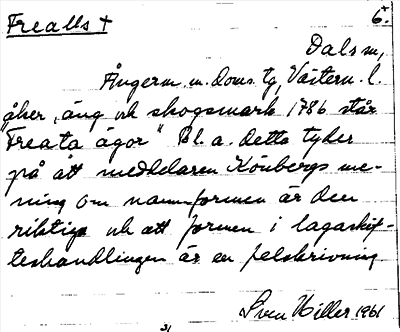 Frealls †
6.
Dals sn,
Ångerm. n. doms. tg, Västern. l.
"åker, äng och skogsmark 1786 står
Freata ägor" Bl. a. detta tyder
på att meddelaren Könbergs me-
ning om namnformen är den
riktiga och att formen i lagaskif-
teshandlingen är en felskrivning.
Sven Hiller 1961
31